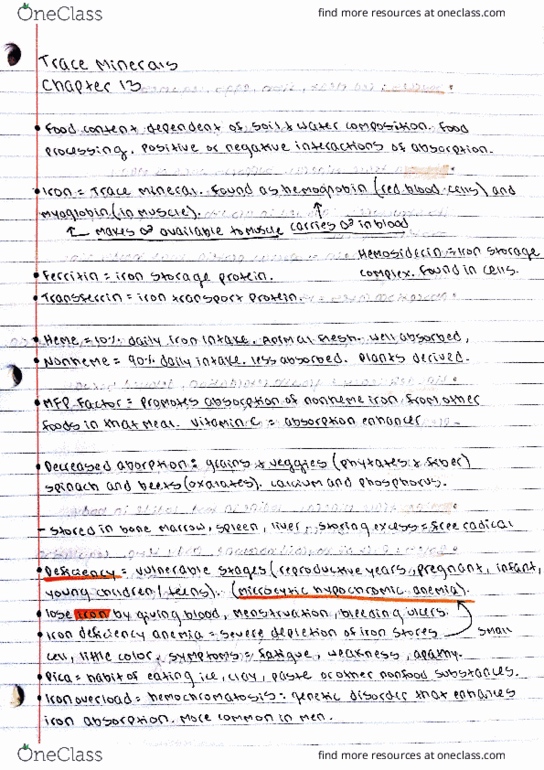 OneClass
find more resources at oneclass.com
Trace Minerals
Chapter 13
• Food content dependent of soil & water composition. Food
processing. Positive or negative interactions of absorption.
• Iron = Trace mineral. Found as hemoglobin (red blood cells) and
myoglobin (in muscle).
↑ makes O2 available to muscle carries O2 in blood
Hemosiderin = iron storage
complex. Found in cells.
• Ferritin = iron storage protein.
• Transferrin = iron transport protein.
• Heme = 10% daily iron intake. Animal flesh. Well absorbed,
• Nonheme = 90% daily intake. less absorbed. Plants derived.
• MFP Factor = promotes absorption of nonheme iron from other
foods in that meal. Vitamin C = absorption enhancer
• Decreased aborption = grains & veggies (phytates & fiber)
spinach and beets (oxalates). calcium and phosphorus.
- stored in bone marrow, spleen, liver, storing excess = free radical
• Deficiency = vulnerable stages (reproductive years, pregnant, infant,
young children/teens). (microcytic hypochromic anemia).
• lose iron by giving blood, menstruation, bleeding ulcers.
• Iron deficiency anemia = severe depletion of iron stores small
cell, little color, symptoms = fatigue, weakness, apathy.
• Pica = habit of eating ice, clay, paste or other nonfood substances.
• Iron overload = hemochromatosis = genetic disorder that enhances
iron absorption. More common in men.
OneClass
find more resources at oneclass.com